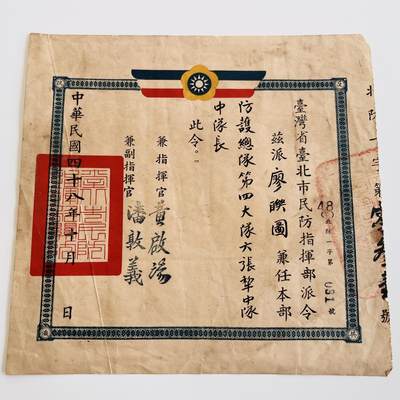 臺灣省臺北市民防指揮部派令
48 北防一字第 031 號
茲派廖映圖兼任本部
防護總隊第四大隊六張犂中隊
中隊長
此令。
兼指揮官 黃啟瑞
兼副指揮官 潘敦義
中華民國四十八年十月 日